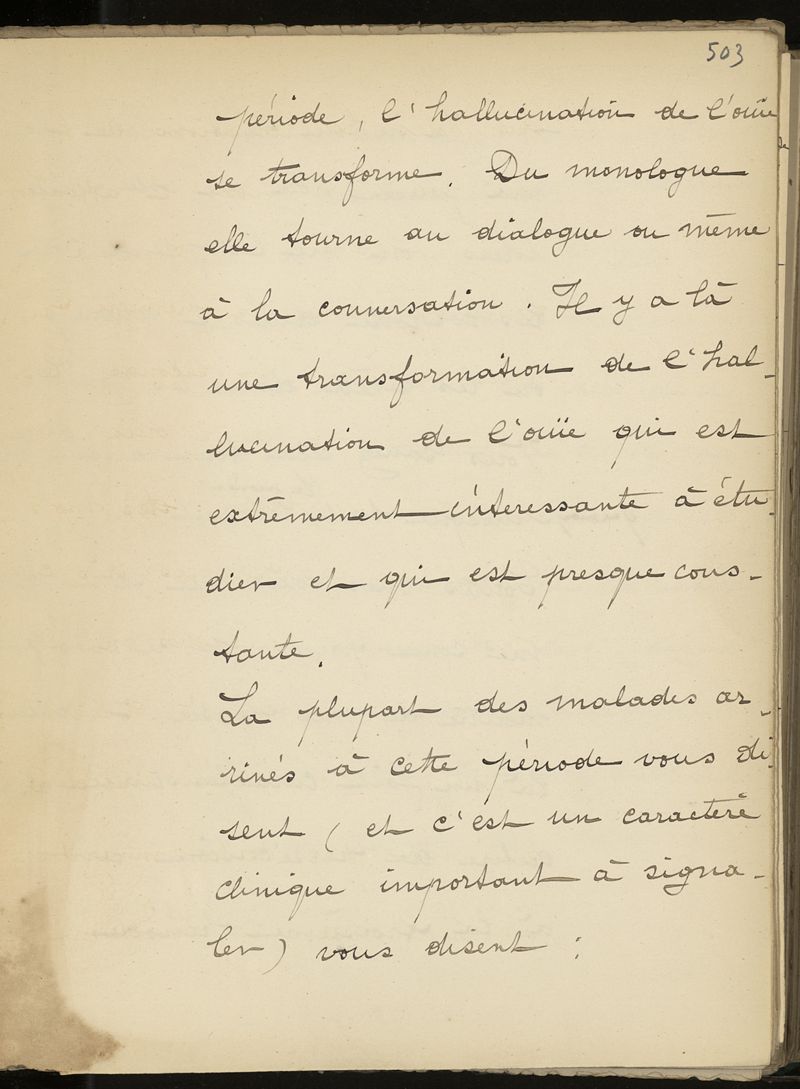 503
période, l'hallucination de l'ouïe
se transforme. Du monologue
elle tourne au dialogue ou même
à la conversation. Il y a là
une transformation de l'hal-
lucination de l'ouïe qui est
extrêmement intéressante à étu-
dier et qui est presque cons-
tante.
La plupart des malades ar-
rivés à cette période vous di-
sent (et c'est un caractère
clinique important à signa-
ler) vous disent :